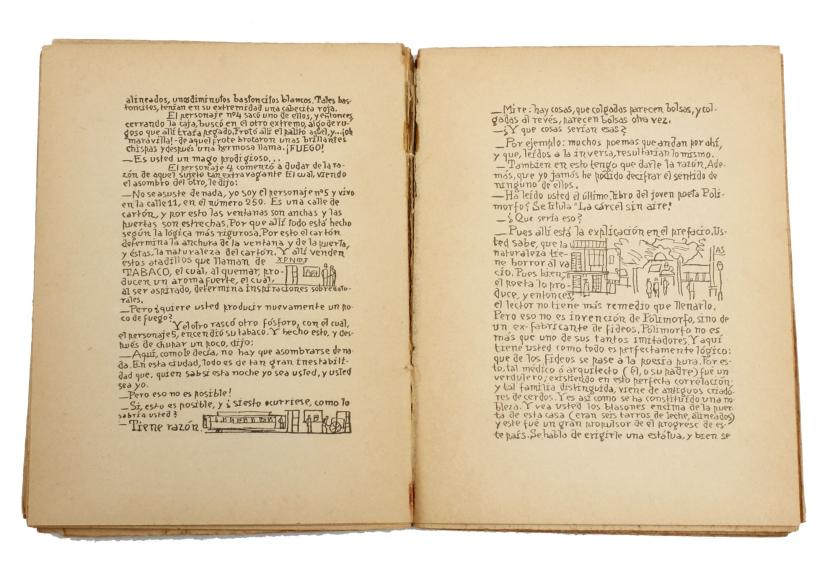 alineados, unos diminutos bastoncitos blancos. Tales bas-
toncitos, tenían en su extremidad una cabecita roja.
El personaje nº4 sacó uno de ellos, y entonces,
cerrando la caja, buscó en el otro extremo, algo de ru-
goso que allí traía pegado. Frotó allí el palito aquel, y...¡oh
maravilla!- de aquel frote brotaron unas brillantes
chispas y después una hermosa llama. ¡FUEGO!
— Es usted un mago prodigioso...
El personaje 4 comenzó a dudar de la ra-
zón de aquel sujeto tan extravagante El cual, viendo
el asombro del otro, le dijo:
— No se asuste de nada, yo soy el personaje nº5 y vivo
en la calle 11, en el número 250. Es una calle de
cartón, y por esto las ventanas son anchas y las
puertas son estrechas. Por que allí todo está hecho
según la lógica más rigurosa. Por esto el cartón
determina la anchura de la ventana y de la puerta,
y éstas, la naturaleza del cartón. Y allí venden
estos atadillos que llaman de
TABACO, el cual, al quemar, pro-
ducen un aroma fuerte, el cual,
al ser aspirado, determina inspiraciones sobrenatu-
rales.
— Pero ¿quiere usted producir nuevamente un po-
co de fuego?
Y el otro rascó otro fósforo, con el cual,
el personaje 5, encendió su tabaco. Y hecho esto, y des-
pués de chupar un poco, dijo:
— Aquí, como le decía, no hay que asombrarse de na-
da. En esta ciudad, todo es de tan gran inestabili-
dad que, quien sabe si esta noche yo sea usted, y usted
sea yo.
— Pero eso no es posible!
— Si, esto es posible, y ¿ si esto ocurriese, como lo
sabría usted?
— Tiene razón.
— Mire: hay cosas, que colgadas parecen bolsas, y col-
gadas al revés, parecen bolsas otra vez.
— ¿Y que cosas serían esas?
— Por ejemplo: muchos poemas que andan por ahí,
y que, leídos a la inversa, resultarían lo mismo.
— Tambien en esto tengo que darle la razón. Ade-
más, que yo jamás he podido decifrar el sentido de
ninguno de ellos.
— Ha leído usted el último libro del joven poeta Poli-
morfo? Se titula "La cárcel sin aire!
— ¿Que sería eso?
— Pues allí está la explicación en el prefacio. Us-
ted sabe, que la
naturaleza tie-
ne horror al va
cío. Pues bien,
el poeta lo pro-
duce, y entonces,
el lector no tiene más remedio que llenarlo.
Pero eso no es invención de Polimorfo, sino de
un ex-fabricante de fideos. Polimorfo no es
más que uno de sus tantos imitadores. Y aquí
tiene usted como todo es perfectamente lógico:
que de los fideos se pase a la poesía pura. Por es-
to, tal médico ó arquitecto (él, o su padre) fué un
verdulero; existiendo en esto perfecta correlación;
y tal familia distinguida, viene de antiguos criado-
res de cerdos. Y es así como se ha constituído una no-
bleza. Y vea usted los blasones encima de la puer
ta de esta casa (eran seis tarros de leche, alineados)
y este fué un gran propulsor de el progreso de es-
te país. Se habla de erigirle una estátua, y bien se